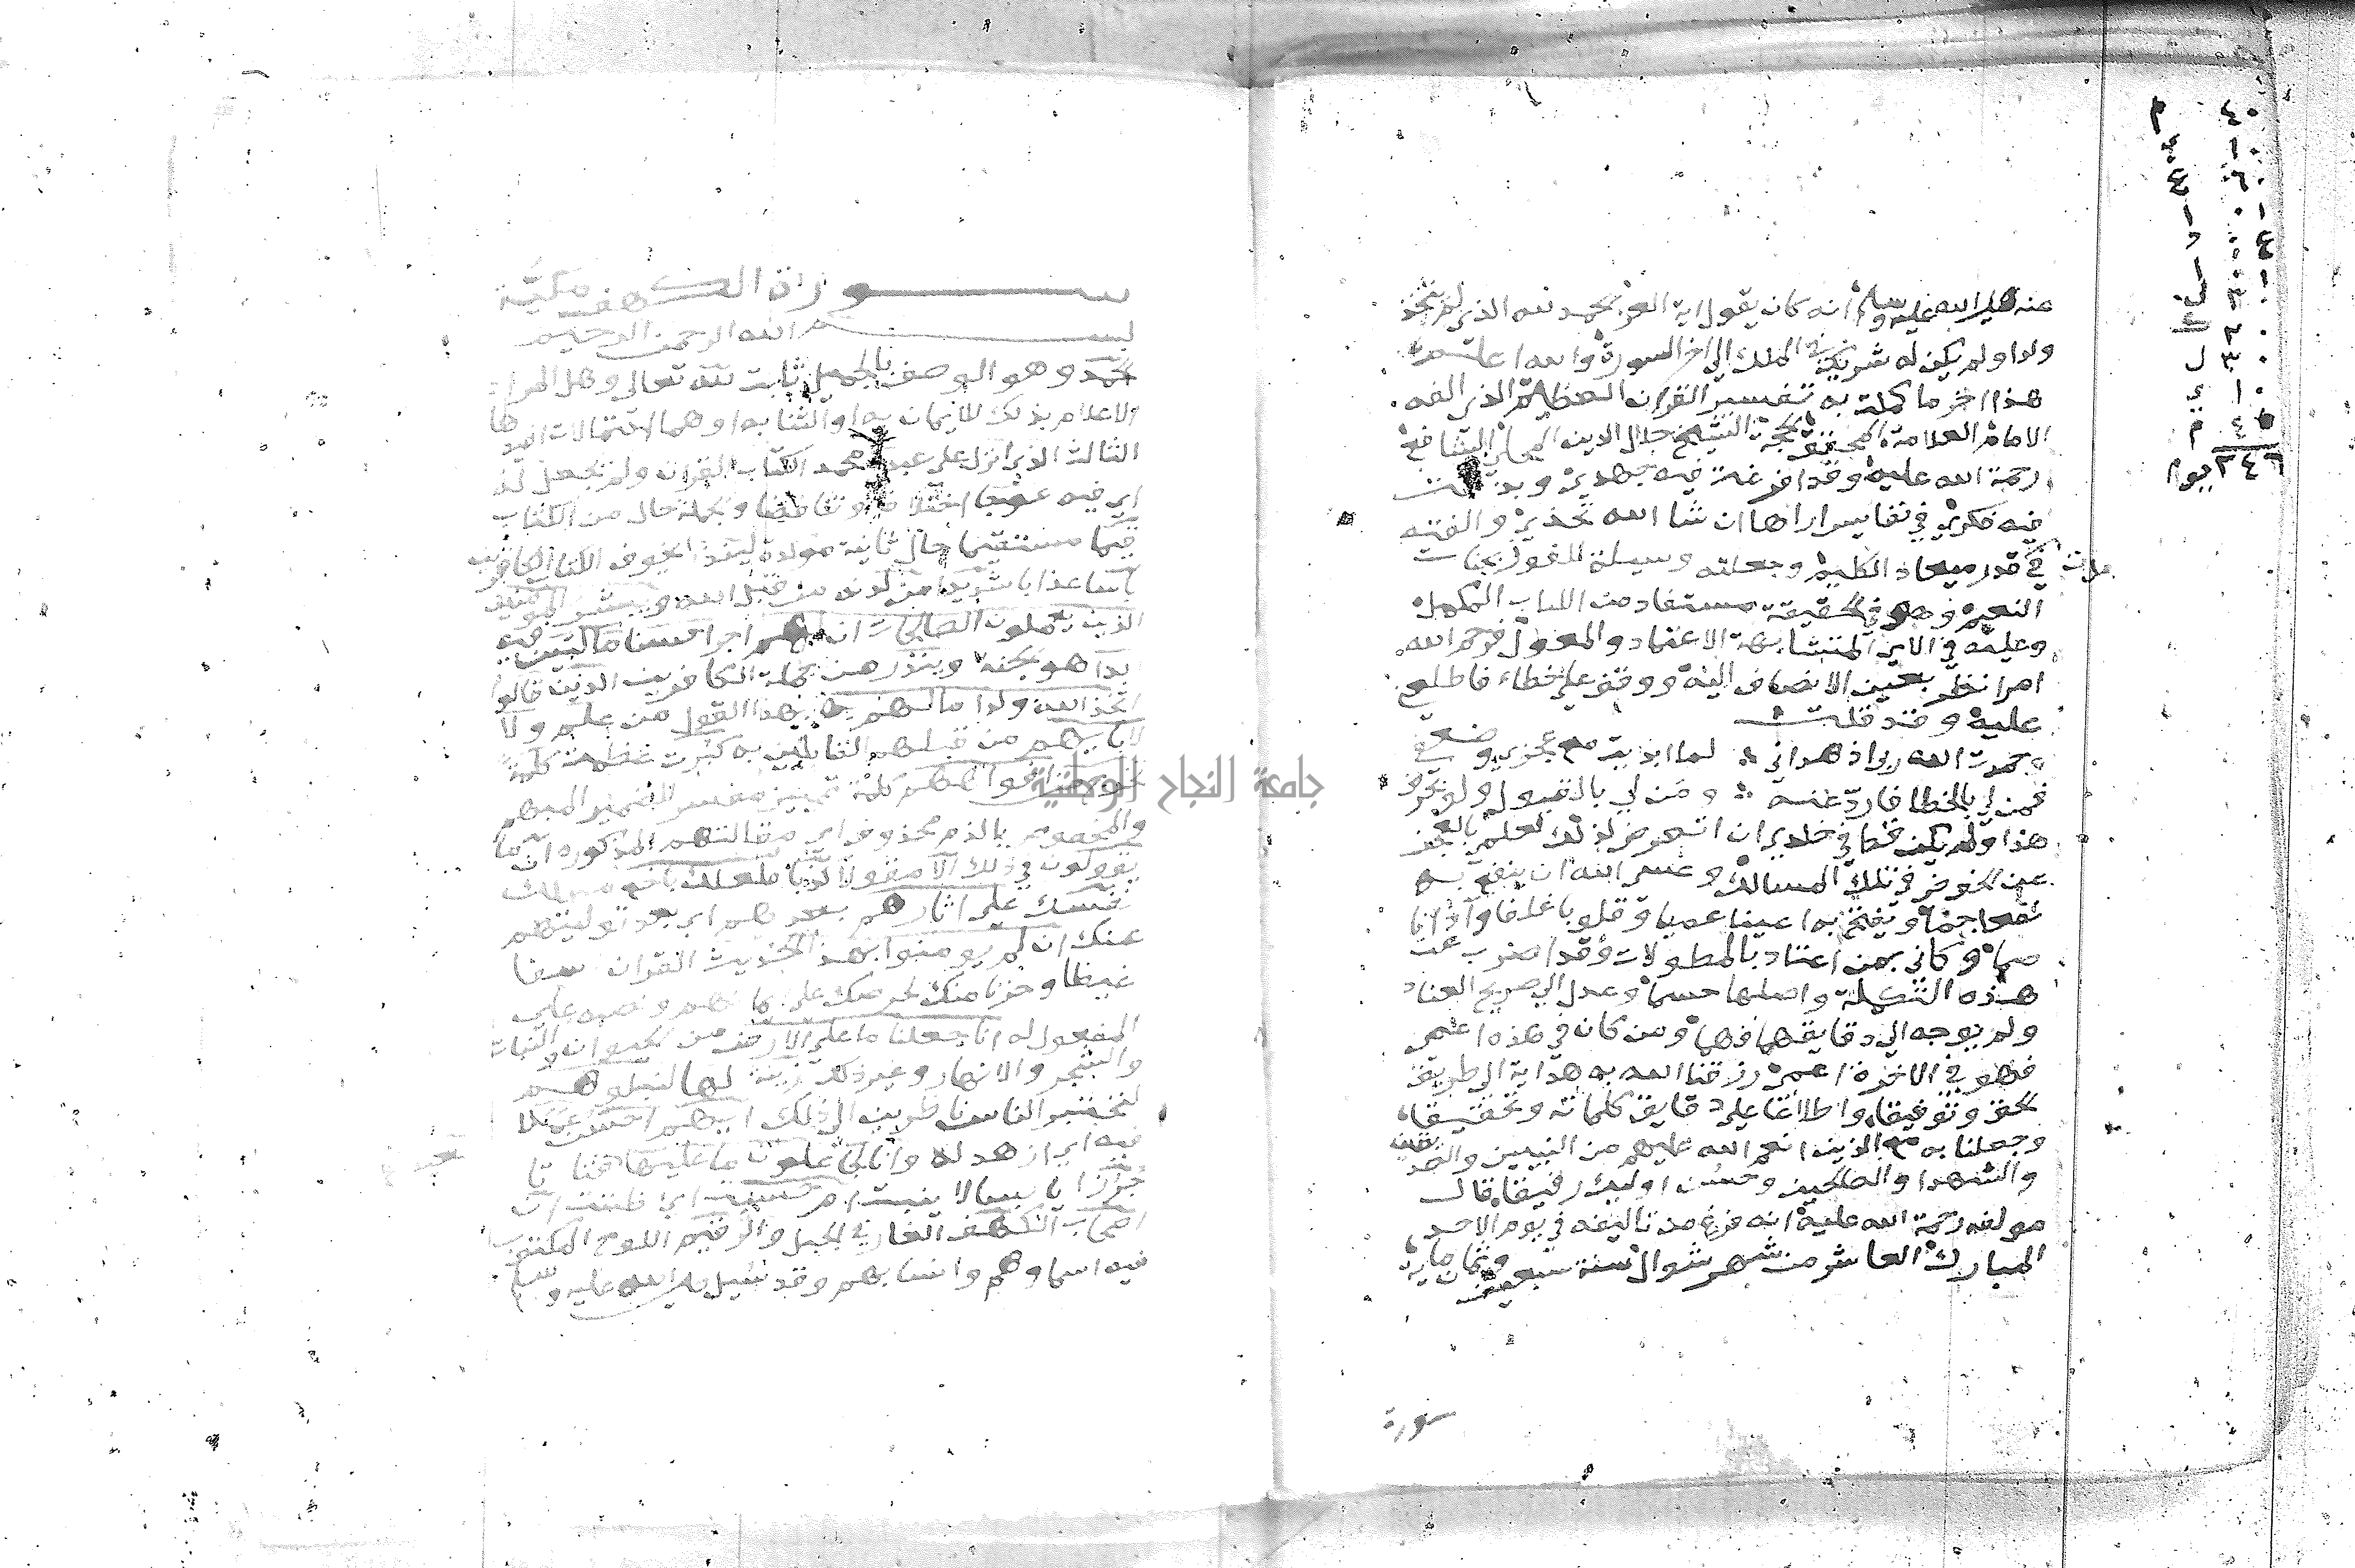 عنه صلى الله عليه وسلم انه كان يقول اية العز الحمد لله الذي لم يتخذ
ولدا ولم يكن له شريك في الملك الى اخر السورة والله اعلم
هذا اخر ما كملت به تفسير القران العظيم الذي الفه
الامام العلامة المحقق الشيخ جلال الدين المحلي الشافعي
رحمة الله عليه وقد افرغت فيه جهدي وبذلت
فيه فكري في نفايس اراها ان شا الله تجدي والفته
في قدر ميعاد الكليم وجعلته وسيلة للفوز بجنات
النعيم وهو في الحقيقة مستفاد من الكتاب المكمل
وعليه في الاي المتشابهة الاعتماد والمعول فرحم الله
امرا نظر بعين الانصاف اليه ووقف على خطاء فاطلع
عليه وقد قلت
حمدت الله ربي اذ هداني لما ابديت مع عجزي وضعفي
فمن لي بالخطا فارد عنه ومن لي بالقبول ولو بحرف
هذا ولم يكن قط في خلدي ان اتعرض لذلك لعلمي بالعجز
عن الخوض في تلك المسالك وعسى الله ان ينفع به
نفعا جما ويفتح به اعينا عميا وقلوبا غلفا وآذانا
صما وكاني بمن اعتاد بالمطولات وقد اضرب عن
هذه التكملة واصلها حسما وعدل الى صريح العناد
ولم يوجه الى دقايقهما فهما ومن كان في هذه اعمى
فهو في الاخرة اعمى رزقنا الله به هداية الى طريق
الحق وتوفيقا واطلاعا على دقايق كلماته وتحقيقا
وجعلنا به مع الذين انعم الله عليهم من النبيين والصديقين
والشهدا والصالحين وحسن اوليك رفيقا قال
مولفه رحمة الله عليه انه فرغ من تاليفه في يوم الاحد
المبارك العاشر من شهر شوال سنة سبعين وثمان ماية
سورة
٢٤٦ يوما
سورة الكهف مكية
بسم الله الرحمن الرحيم
الحمد وهو الوصف بالجميل ثابت لله تعالى وهل المراد
الاعلام بذلك للايمان به او الثنا به او هما احتمالات افيدها
الثالث الذي انزل على عبده محمد الكتاب القران ولم يجعل له
اي فيه عوجا اختلافا وتناقضا والجملة حال من الكتاب
قيما مستقيما حال ثانية موكدة لينذر يخوف الكتاب الكافرين
باسا عذابا شديدا من لدنه من قبل الله ويبشر المومنين
الذين يعملون الصالحات ان لهم اجرا حسنا ماكثين فيه
ابدا هو الجنة وينذر من جملة الكافرين الذين قالوا
اتخذ الله ولدا ما لهم به بهذا القول من علم ولا
لابايهم من قبلهم القايلين به كبرت عظمت كلمة
تخرج من افواههم كلمة تمييز مفسر للضمير المبهم
والمخصوص بالذم محذوف اي مقالتهم المذكورة ان ما
يقولون في ذلك الا مقولا كذبا فلعلك باخع مهلك
نفسك على اثارهم بعدهم اي بعد توليتهم
عنك ان لم يومنوا بهذا الحديث القران اسفا
غيظا وحزنا منك لحرصك على ايمانهم ونصبه على
المفعول له انا جعلنا ما على الارض من الحيوان والنبات
والشجر والانهار وغير ذلك زينة لها لنبلوهم
لنختبر الناس ناظرين الى ذلك ايهم احسن عملا
فيه اي ازهد له وانا لجاعلون ما عليها فتاتا
جرزا يابسا لا ينبت ام حسبت اي ظننت ان
اصحاب الكهف الغار في الجبل والرقيم اللوح المكتوب
فيه اسماوهم وانسابهم وقد سئل صلى الله عليه وسلم
جامعة النجاح الوطنية